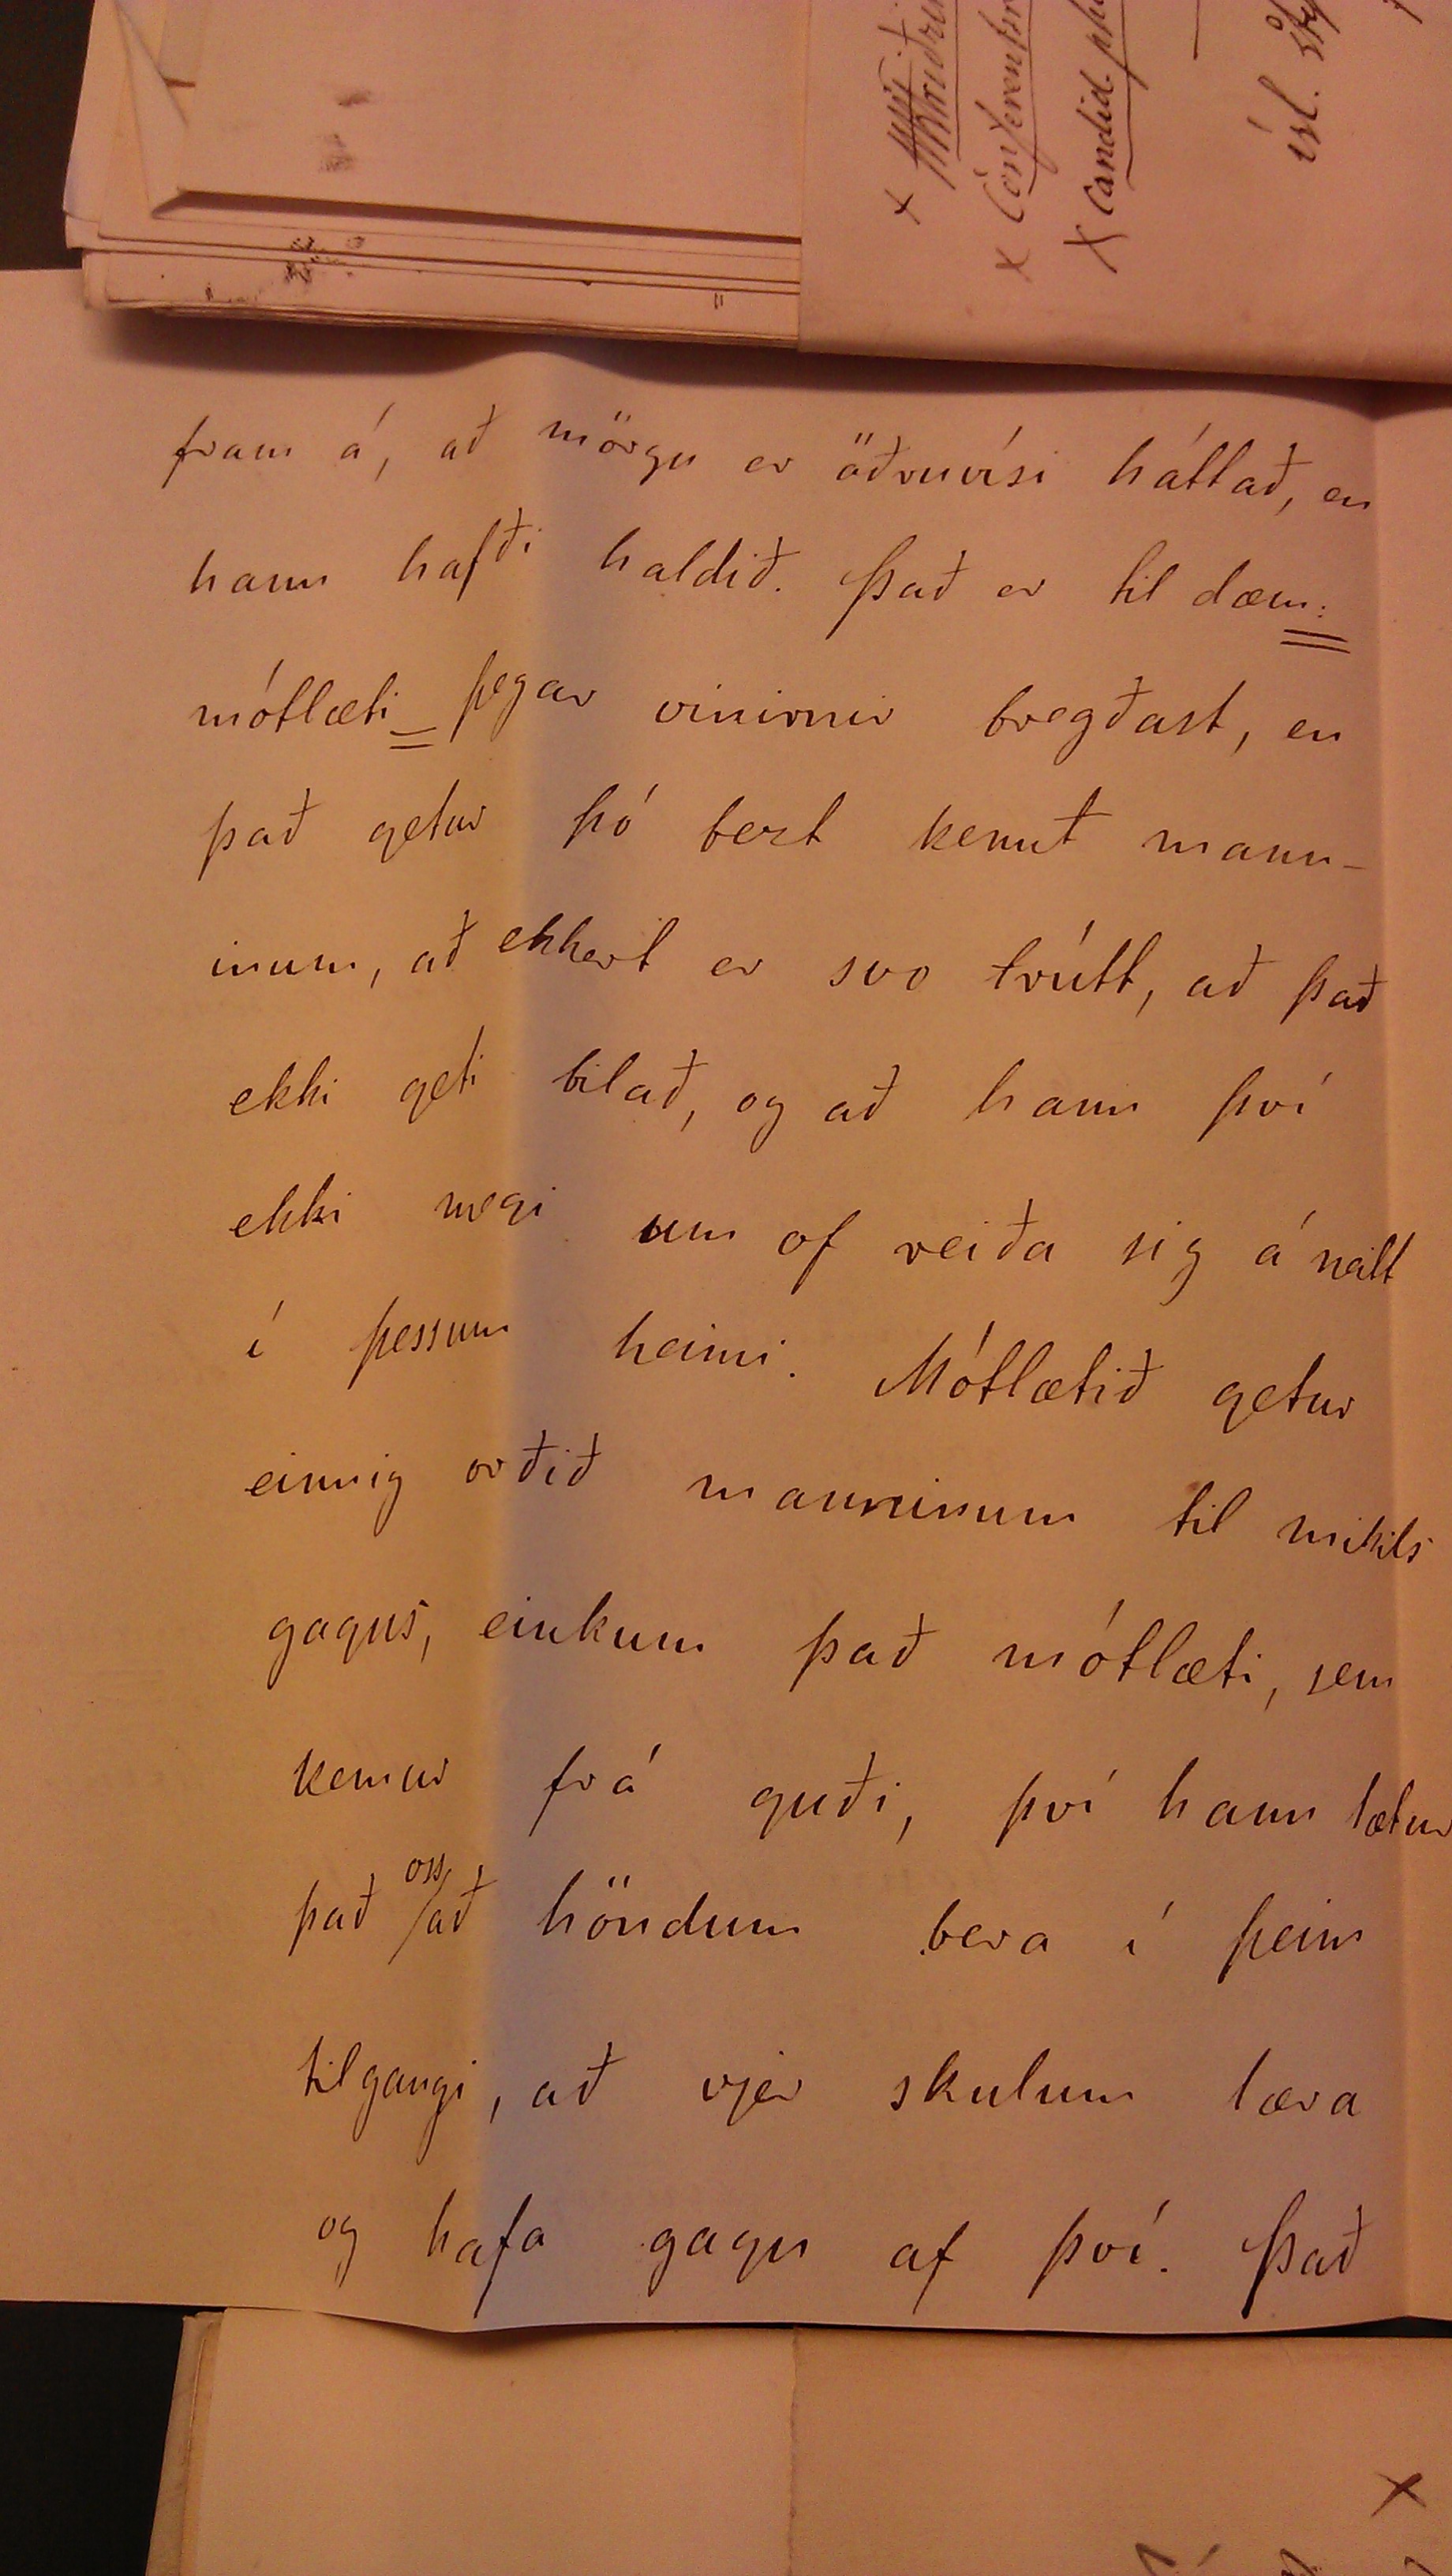 Conferents
Candid.
ísl.
fram á, að mörgu er öðruvísi háttað, en
hann hafði haldið. Það er til dæm:
mótlæti þegar vinirnir bregðast, en
það getur þó bezt kennt mann-
inum, að ekkert er svo trútt, að það
ekki geti bilað, og að hann því
ekki megi um of reiða sig á neitt
í þessum heimi. Mótlætið getur
einnig orðið manninum til mikils
gagns, einkum það mótlæti, sem
kemur frá guði, því hann lætur
það oss að höndum bera í þeim
tilgangi, að vjer skulum læra
og hafa gagn af því. Það